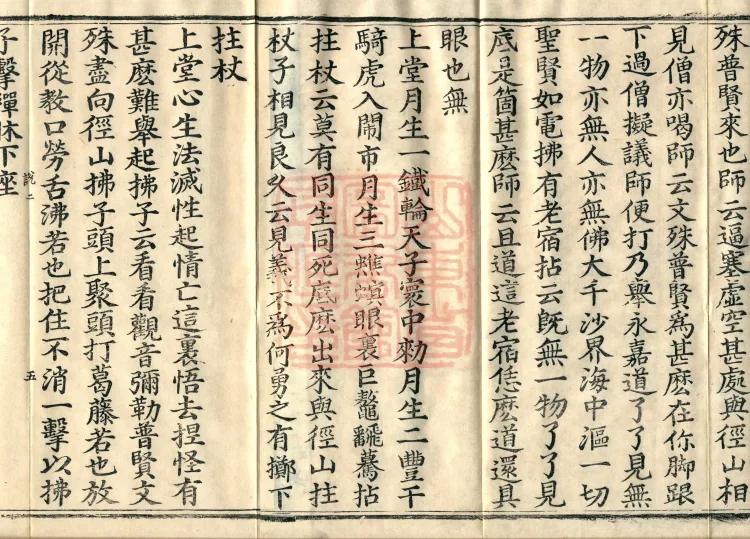 殊普賢來也師云逼塞虛空甚處與徑山相
見僧亦喝師云文殊普賢為甚麼在你脚跟
下過僧擬議師便打乃舉永嘉道了了見無
一物亦無人亦無佛大千沙界海中漚一切
聖賢如電拂有老宿拈云既無一物了了見
底是箇甚麼師云且道這老宿恁麼道還具
眼也無
上堂月生一鐵輪天子寰中勑月生二豐干
騎虎入鬧市月生三蟭螟眼裏巨鼇飜驀拈
拄杖云莫有同生同死底麼出來與徑山拄
杖子相見良久云見義不為何勇之有擲下
拄杖
上堂心生法滅性起情亡這裏悟去捏怪有
甚麼難舉起拂子云看看觀音彌勒普賢文
殊盡向徑山拂子頭上聚頭打葛藤若也放
開從教口勞舌沸若也把住不消一擊以拂
子擊禪牀下座
說二
五